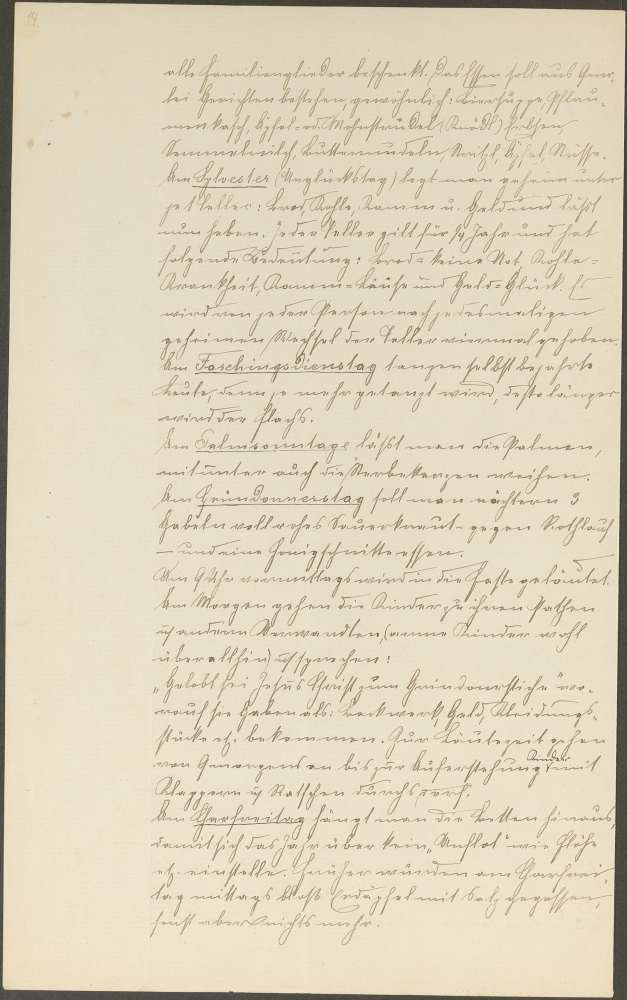 14.
alle Familienglieder beschenkt. Das Essen soll aus 9nerlei
lei Gerichten bestehen, gewöhnlich: Biersuppe, Pflau-
menkasch, Apfel- od. Mohnstrudel, (Knödl) Erbsen,
Semmelmilch, Butternudeln, Strizl, Äpfel, Nüsse.
Am Sylvester (Unglückstag) legt man geheim unter
je 1 Teller: Brod, Kohle, Kamm u. Geld und läßt
nun heben. Jeder Teller gilt für ¼ Jahr und hat
folgende Bedeutung: Brod = keine Not, Kohle =
Krankheit, Kamm = Läuse und Geld = Glück. Es
wird von jeder Person nach jedesmaligem
geheimen Wechsel der Teller viermal gehoben.
Am Faschingsdienstag tanzen selbst bejahrte
Leute, denn je mehr getanzt wird, desto länger
wird der Flachs.
Am Palmsonntage läßt man die Palmen,
mitunter auch die Sterbekerzen weihen.
Am Gründonnerstag soll man nüchtern 3
Gabeln voll rohes Sauerkraut - gegen Rothlauf
- und eine Honigschnitte essen.
Um 9 Uhr vormittags wird in die Faste geläutet.
Am Morgen gehen die Kinder zu ihren Pathen
u. anderen Verwandten, (arme Kinder wohl
überallhin) u. sprechen:
„Gelobt sei Jesus Christ zum Grindonrstiche" wo-
rauf sie Gaben als: Backwerk, Geld, Kleidungs-
stücke etz. bekommen. Zur Läutezeit gehen
von 9 morgens an bis zur Auferstehung Kinder mit
Klappern u. Ratschen durchs Dorf.
Am Charfreitag hängt man die Betten hinaus,
damit sich das Jahr über kein „Unflot" wie Flöhe
etz. einstelle. Früher wurden am Charfrei-
tag mittags bloß Erdäpfel mit Salz gegessen,
sonst aber nichts mehr.